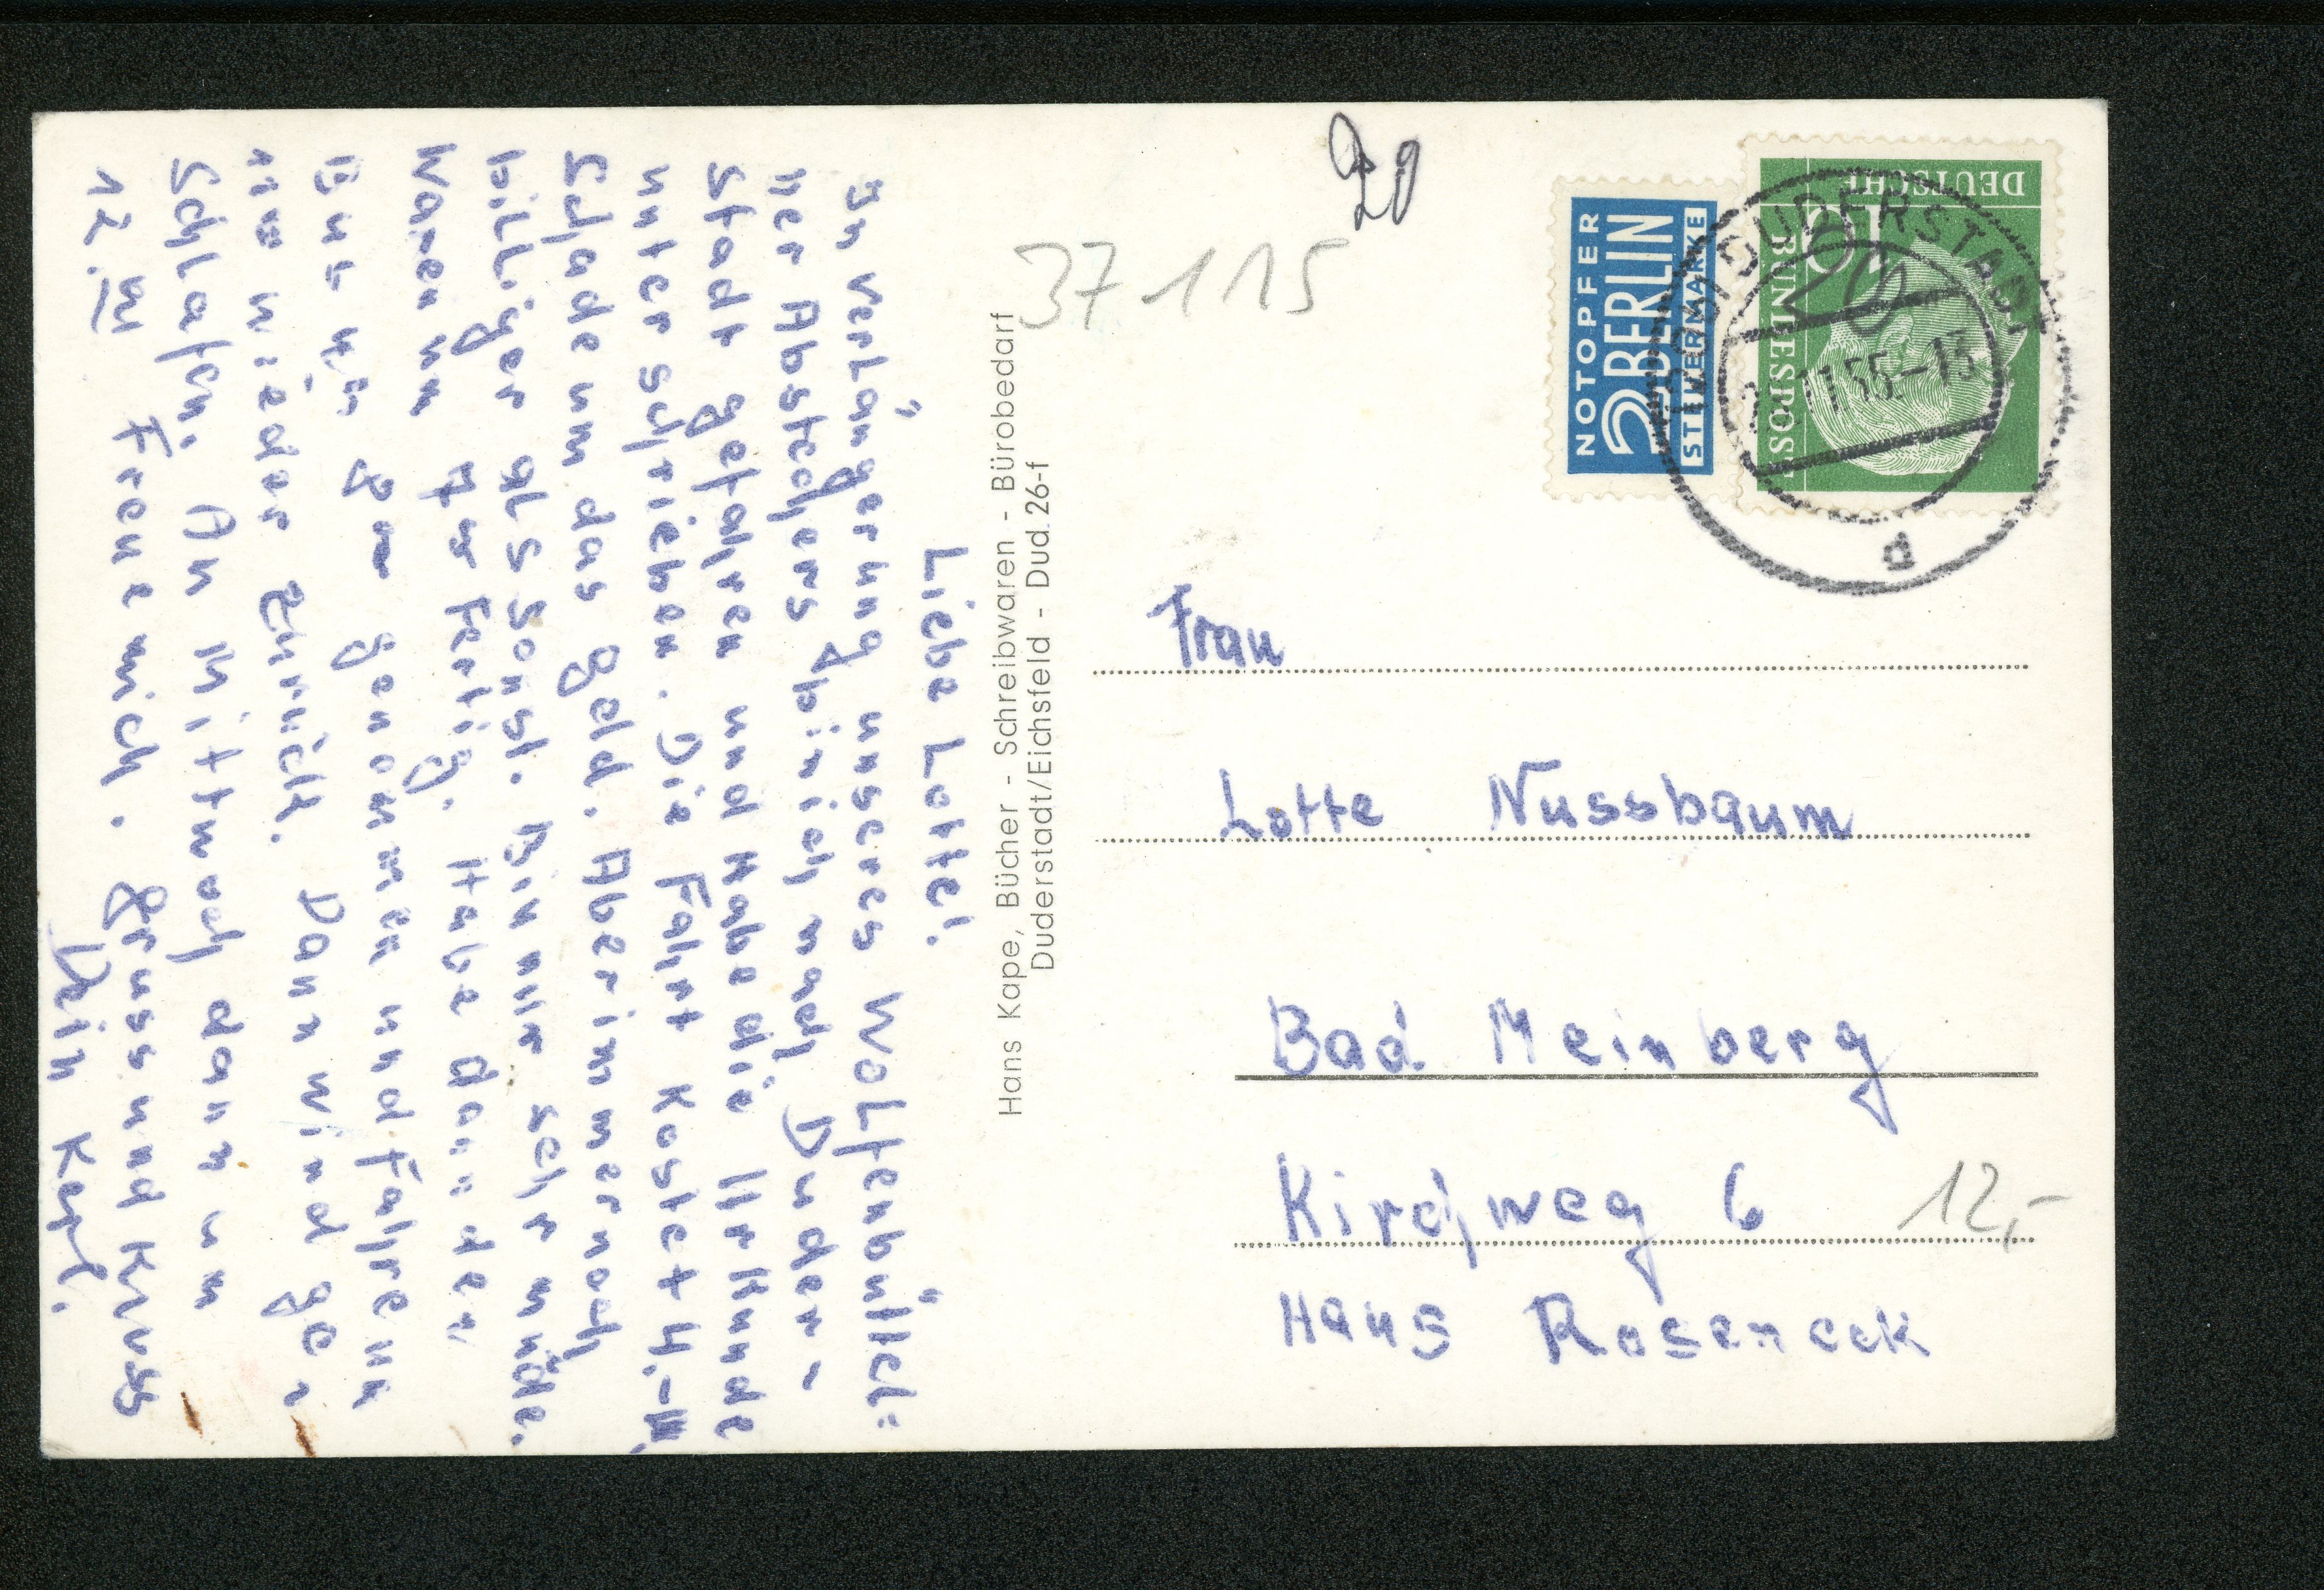 Liebe Lotte!
In Verlängerung unseres Wolfenbüttel=
ner Abstechers bin ich nach Duder-
stadt gefahren und habe die Urkunde
unterschrieben. Die Fahrt kostet 4,-M.
Schade um das Geld. Aber immer noch
billiger als sonst. Bin nur sehr müde.
Waren um 7 Uhr fertig. Habe dann den
Bus genommen und fahren
nun wieder zurück. Dann wird ge-
schlafen. An Mittwoch dann um
12. Freue mich. Gruss und Kuss
Dein
Hans Kape, Bücher - Schreibwaren - Bürobedarf
Duderstadt/Eichsfeld - Dud. 26-f
37-115
20
NOTOPFER
2 BERLIN
STEUERMARKE
DEUTSCHE
BUNDESPOST
10
DUDERSTADT
11.55.-13
Frau
Lotte Nussbaum
Bad Meinberg
Kirchweg 6
12,-
Haus Roseneck